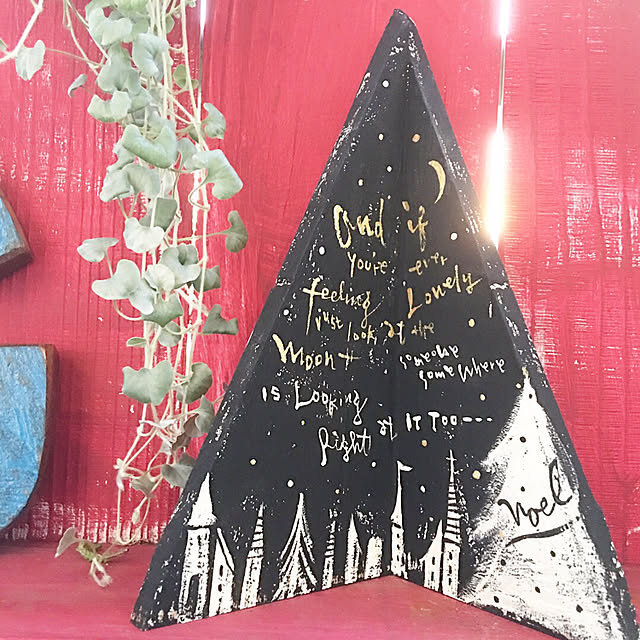 And if
you're ever
feeling Lonely
just look at the
Moon + someone
somewhere
is Looking
Right at IT Too---
Noel